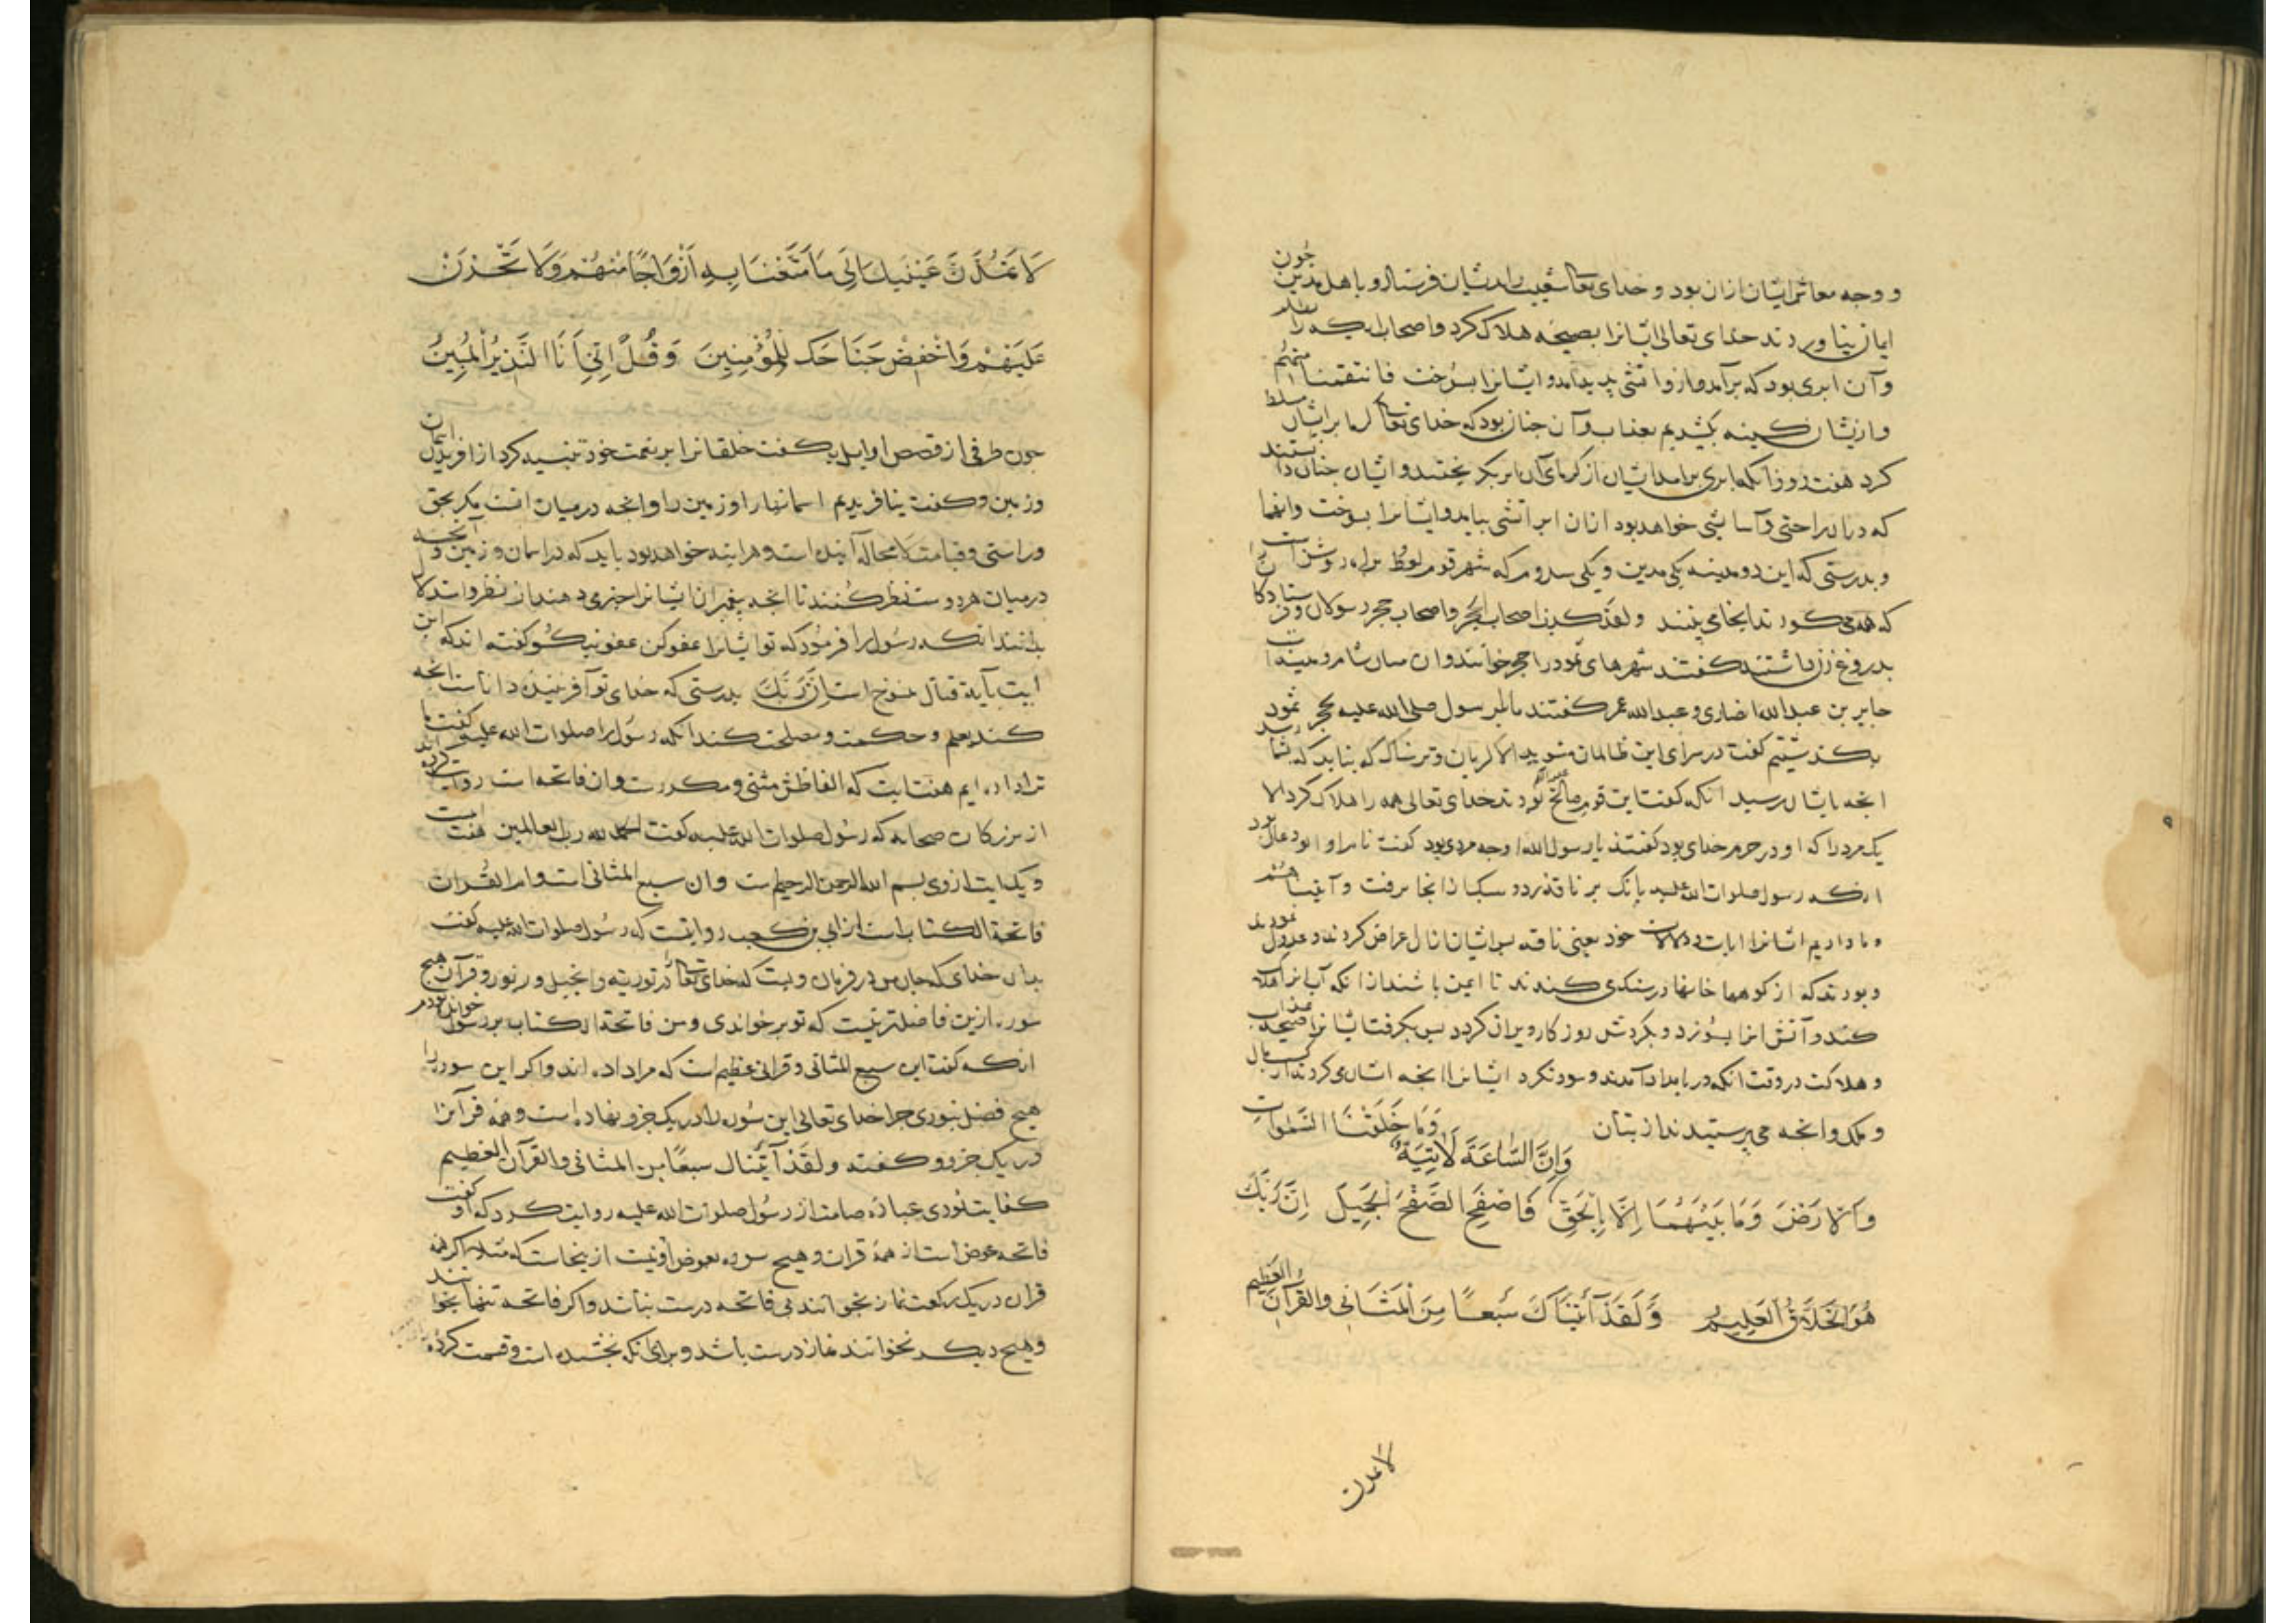 و وجه معاش ایشان ازان بود و خدای تعالی شعیب را بدیشان فرستاد و باهل مدین چون
ایمان نیاوردند خدای تعالی ایشانرا بصیحه هلاک کرد و اصحاب ایکه را
وآن ابری بود که برآمد و ازو آتشی پدید آمد و ایشانرا بسوخت فانتقمنا منهم
و ازیشان کینه بکشیدیم بعذاب وآن چنان بود که خدای تعالی کرما بر ایشان مسلط
کرد هفت روز آنکه ابری برآمد ایشان از کرمای آن بابر بکریختند و ایشان چنان دانستند
که دران راحتی و آسایشی خواهد بود ازان ابر آتشی بیامد و ایشانرا بسوخت وانهما
و بدرستی که این دو مدینه یکی مدین و یکی سدوم که شهر قوم لوط براه روشن است
که می کذرند انجا می بینند ولقد کذب اصحاب الحجر و اصحاب حجر رسولان و فرستادکانرا
بدروغ زن داشتند کفتند شهرهای ثمود را حجر خوانند وان میان شام و مدینه است
جابر بن عبدالله انصاری و عبدالله عمر کفتند ما با رسول صلی الله علیه بحجر ثمود
بکذشتیم کفت در سرای این ظالمان مشوید الا کریان و ترسناک که نباید که بشما رسد
انچه بایشان رسید آنکه کفت این قوم صالح بودند خدای تعالی همه را هلاک کرد الا
یک مرد را که او در حرم خدای بود کفتند یا رسول الله او چه مردی بود کفت نام او ابورغال بود
آنکه رسول صلوات الله علیه بانک بر ناقه زد و سبک از انجا برفت وآتیناهم
و ما دادیم ایشانرا آیات و دلالات خود یعنی ناقه پس ایشان ازان اعراض کردند و عدول نمودند
و بودند که از کوهها خانها در سنک می کندند تا ایمن باشند از آنکه آب انرا هلاک
کند و آتش انرا بسوزد و بکردش روزکار ویران کردد پس بکرفت ایشانرا صیحه عذاب
و هلاکت در وقت آنکه در بامداد آمدند و سود نکرد ایشانرا انچه ایشان می کردند از کسب مال
و ملک وانچه می پرستیدند از بتان وَمَا خَلَقْنَا السَّمٰوَاتِ
وَاِنَّ السَّاعَةَ لَاٰتِيَةٌ
وَالْاَرْضَ وَمَا بَيْنَهُمَا اِلَّا بِالْحَقِّ فَاصْفَحِ الصَّفْحَ الْجَمِيلَ اِنَّ رَبَّكَ
هُوَ الْخَلَّاقُ الْعَلِيمُ وَلَقَدْ آتَيْنَاكَ سَبْعًا مِنَ الْمَثَانِي وَالْقُرْآنَ الْعَظِيمَ
لا تمدن
لَا تَمُدَّنَّ عَيْنَيْكَ اِلَى مَا مَتَّعْنَا بِهِ اَزْوَاجًا مِنْهُمْ وَلَا تَحْزَنْ
عَلَيْهِمْ وَاخْفِضْ جَنَاحَكَ لِلْمُؤْمِنِينَ وَقُلْ اِنِّي اَنَا النَّذِيرُ الْمُبِينُ
چون طرفی از قصص اوایل بکفت خلقانرا بر نعمت خود تنبیه کرد از آفریدن اسمان
وزمین و کفت نیافریدیم اسمانها را وزمین را وانچه درمیان آنست مکر بحق
و راستی و قیامت لا محاله آینده است و هر آینه خواهد بود باید که در اسمان و زمین و آنچه
درمیان هر دوست نظر کنند تا انچه پیغمبران ایشانرا خبر می دهند از نظر و استدلال
بدانند آنکه رسول را فرمود که تو ایشانرا عفو کن عفو نیکو کفته اند که این
آیت بآیة قتال منسوخ است اِنَّ رَبَّكَ بدرستی که خدای تو آفریننده داناست آنچه
کند بعلم و حکمت و مصلحت کند آنکه رسول را صلوات الله علیه کفت ما
ترا داده ایم هفت آیت که الفاظش مثنی و مکررست وان فاتحه است روایت کرده اند
از بزرکان صحابه که رسول صلوات الله علیه کفت الحمد لله رب العالمین هفت آیت است
و یک آیت از وی بسم الله الرحمن الرحیم است وان سبع المثانی است و ام القرآن
فاتحة الکتاب است از ابی بن کعب روایتست که رسول صلوات الله علیه کفت
بدان خدای که جان من در فرمان ویست که خدای تعالی در توریة و انجیل و زبور و قرآن هیچ
سوره ازین فاضلتر نیست که تو بر خواندی و من فاتحة الکتاب بر رسول خوانده بودم
آنکه کفت این سبع المثانی و قرآن عظیم است که مرا داده اند و اکر این سوره را
هیچ فضل نبودی چرا خدای تعالی این سوره را در یک جزو نهاده است و همه قرآنرا
در یک جزو و کفته ولقد آتیناك سبعًا من المثانی والقرآن العظیم
کفایت بودی عبادة صامت از رسول صلوات الله علیه روایت کرد که او کفت
فاتحه عوض است از همه قرآن و هیچ سوره بعوض او نیست ازینجاست که مثلا اکر همه
قرآن در یک رکعت نماز بخوانند بی فاتحه درست نباشد و اکر فاتحه تنها بخوانند
و هیچ دیکر نخوانند نماز درست باشد و برای آنکه بخشیده است و قسمت کرده